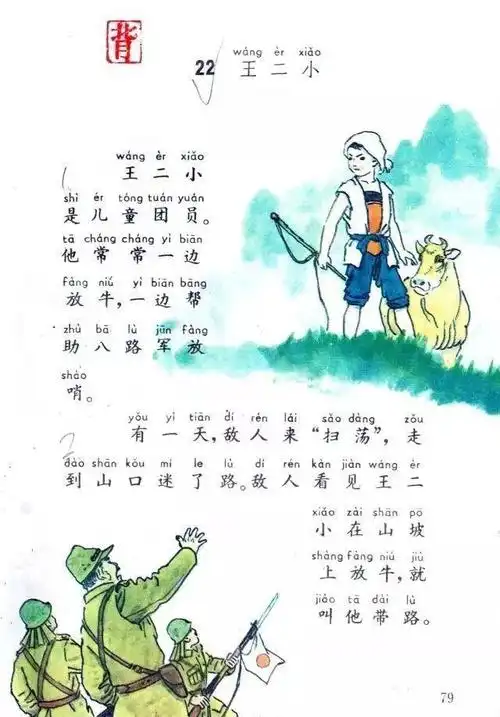 背
wáng èr xiǎo
22 王二小
wáng èr xiǎo
1
王二小
shì ér tóng tuán yuán
是儿童团员。
tā cháng cháng yì biān
他常常一边
fàng niú yì biān bāng
放牛,一边帮
zhù bā lù jūn fàng
助八路军放
shào
哨。
yǒu yì tiān dí rén lái sǎo dàng zǒu
2
有一天,敌人来“扫荡”,走
dào shān kǒu mí le lù dí rén kàn jiàn wáng èr
到山口迷了路。敌人看见王二
xiǎo zài shān pō
小在山坡
shàng fàng niú jiù
上放牛,就
jiào tā dài lù
叫他带路。
79